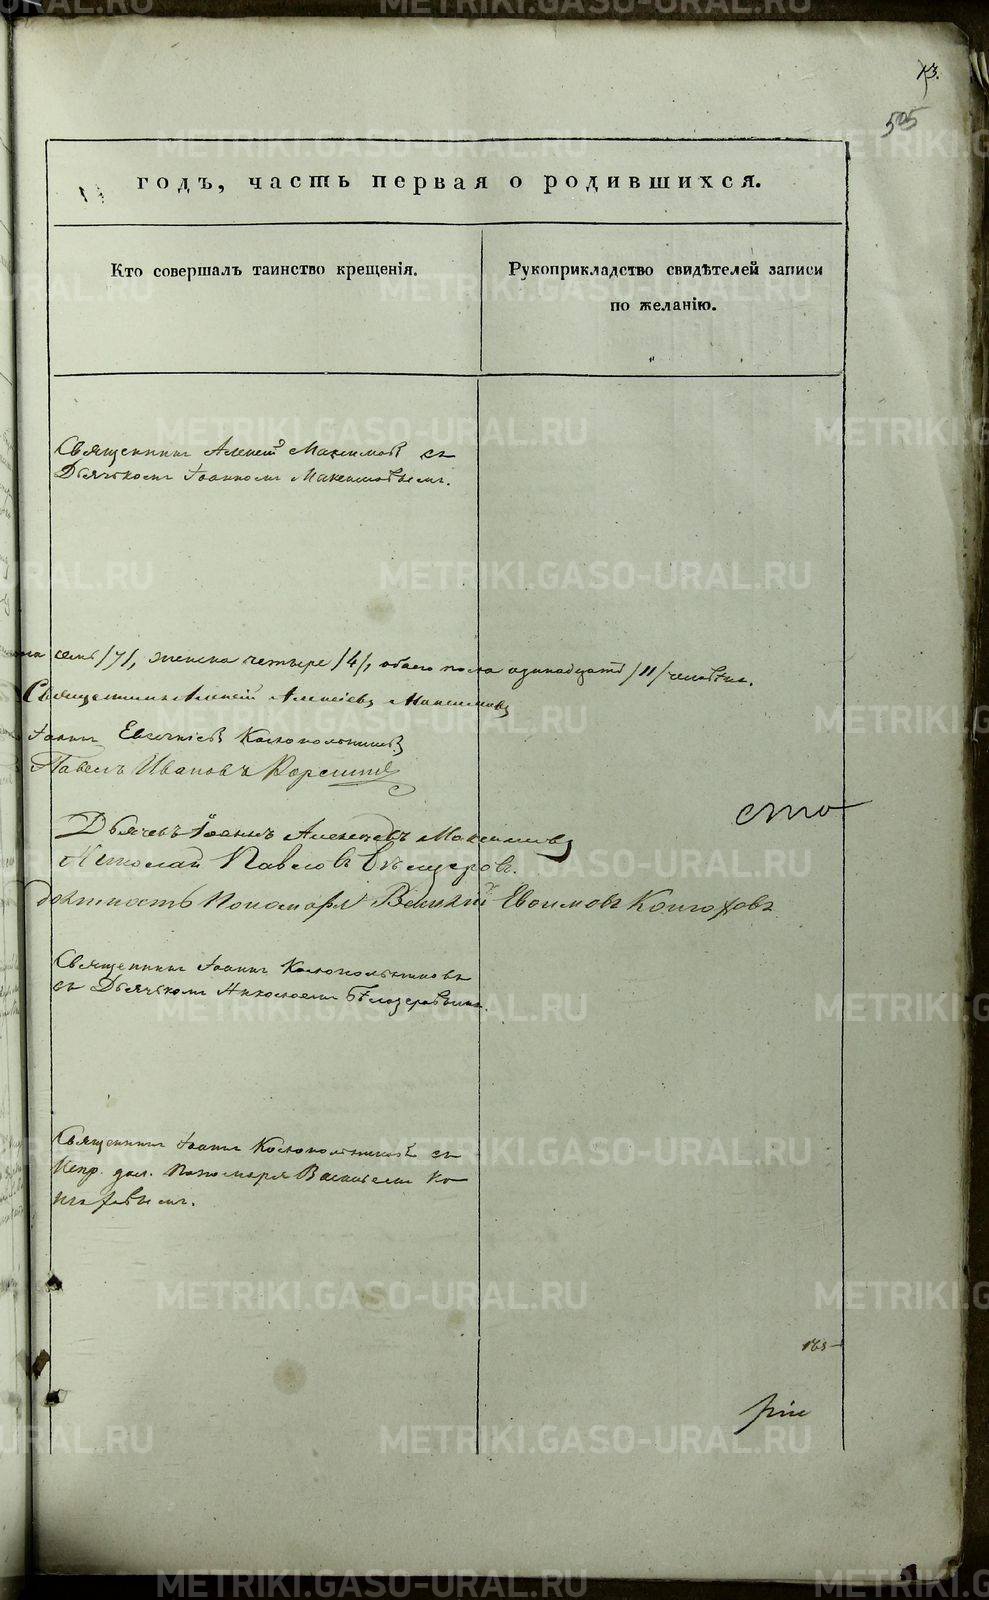 73.
505
годъ, часть первая о родившихся.
Кто совершалъ таинство крещенія.
Рукоприкладство свидѣтелей записи
по желанію.
Священникъ Алексѣй Максимовъ съ
Дьячкомъ Іоанномъ Максимовымъ.
семь /7/, женска четыре /4/, обаего пола одинадцать /11/ человѣкъ.
Священникъ Алексѣй Алексіевъ Максимовъ
Іоаннъ Евсигніевъ Колокольниковъ
Павелъ Ивановъ
сто
Дьячекъ Іоаннъ Алексѣевъ Максимовъ
Николай Павловъ Бѣлозеровъ.
должность Пономаря Василій Евфимовъ
Священникъ Іоаннъ Колокольниковъ
съ Дьячкомъ Николаемъ Бѣлозеровымъ.
Священникъ Іоаннъ Колокольниковъ съ
Испр. дол. Пономаря Василіемъ
METRIKI.GASO-URAL.RU